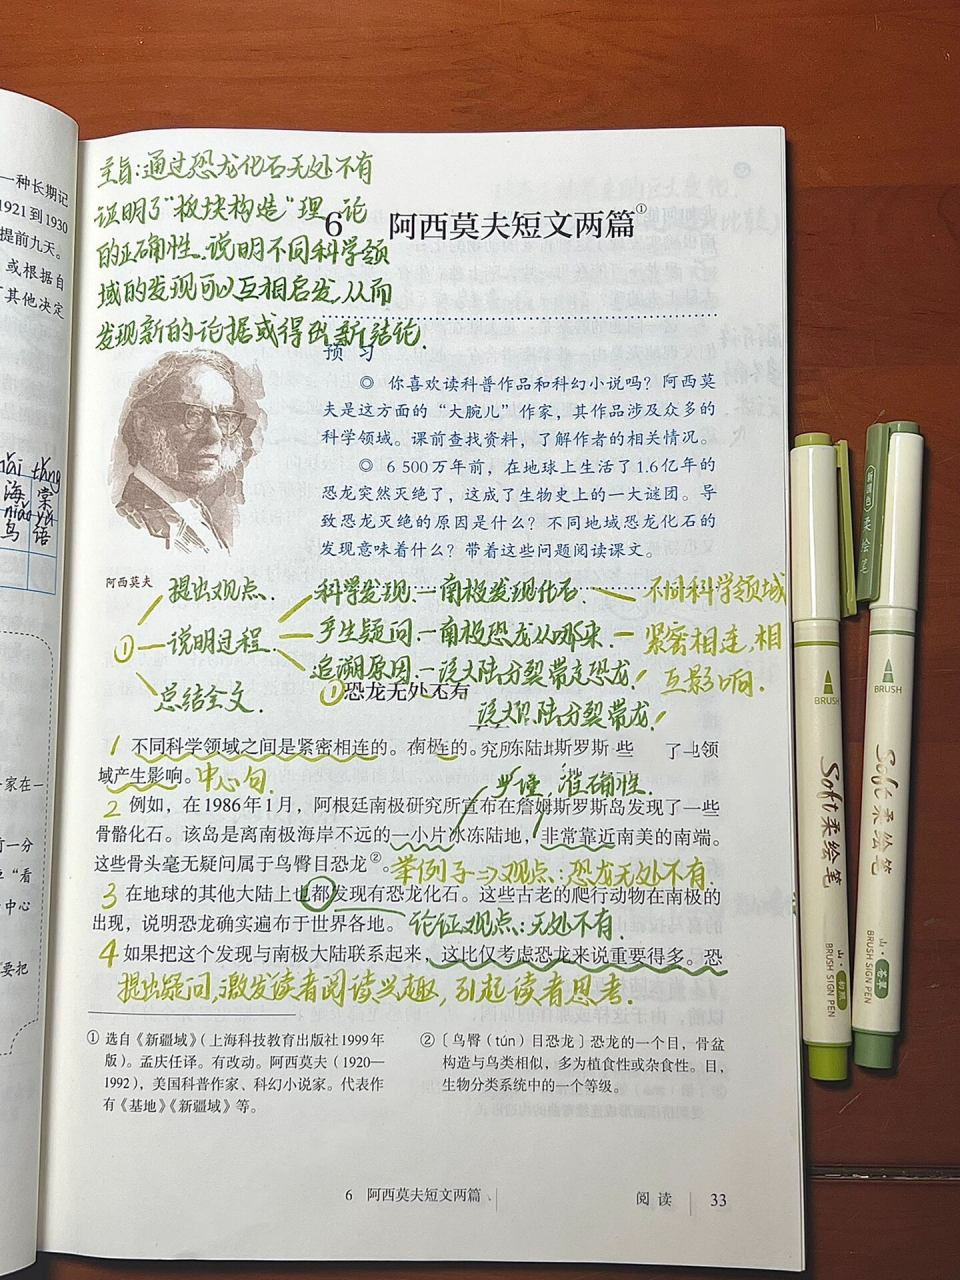 一种长期记
1921到1930
提前九天。
或根据自
其他决定
海 棠
鸟 语
家在一
一分
“看
中心
要把
主旨:通过恐龙化石无处不有
证明了“板块构造”理论
的正确性.说明不同科学领
域的发现可以互相启发,从而
发现新的论据或得出新结论.
6 阿西莫夫短文两篇①
预 习
◎ 你喜欢读科普作品和科幻小说吗？阿西莫
夫是这方面的“大腕儿”作家，其作品涉及众多的
科学领域。课前查找资料，了解作者的相关情况。
◎ 6 500万年前，在地球上生活了1.6亿年的
恐龙突然灭绝了，这成了生物史上的一大谜团。导
致恐龙灭绝的原因是什么？不同地域恐龙化石的
发现意味着什么？带着这些问题阅读课文。
阿西莫夫
提出观点. 科学发现.一南极发现化石. 不同科学领域
① 说明过程. 产生疑问一南极恐龙从哪来 紧密相连,相
追溯原因一说大陆分裂带走恐龙! 互影响.
总结全文. ①恐龙无处不有
说大陆分裂带龙!
1 不同科学领域之间是紧密相连的。南极的。究所东陆斯罗斯 些 了 领
域产生影响。中心句. 严谨,准确性.
2 例如，在1986年1月，阿根廷南极研究所宣布在詹姆斯罗斯岛发现了一些
骨骼化石。该岛是离南极海岸不远的一小片冰冻陆地，非常靠近南美的南端。
这些骨头毫无疑问属于鸟臀目恐龙②。举例子→观点:恐龙无处不有.
3 在地球的其他大陆上也都发现有恐龙化石。这些古老的爬行动物在南极的
出现，说明恐龙确实遍布于世界各地。论证观点:无处不有.
4 如果把这个发现与南极大陆联系起来，这比仅考虑恐龙来说重要得多。恐
提出疑问,激发读者阅读兴趣,引起读者思考.
① 选自《新疆域》（上海科技教育出版社1999年
版）。孟庆任译。有改动。阿西莫夫（1920—
1992），美国科普作家、科幻小说家。代表作
有《基地》《新疆域》等。
② 〔鸟臀（tún）目恐龙〕恐龙的一个目，骨盆
构造与鸟类相似，多为植食性或杂食性。目，
生物分类系统中的一个等级。
6 阿西莫夫短文两篇
阅 读 33
BRUSH
Soft柔绘笔
BRUSH SIGN PEN
柔绘笔
BRUSH
Soft柔绘笔
BRUSH SIGN PEN